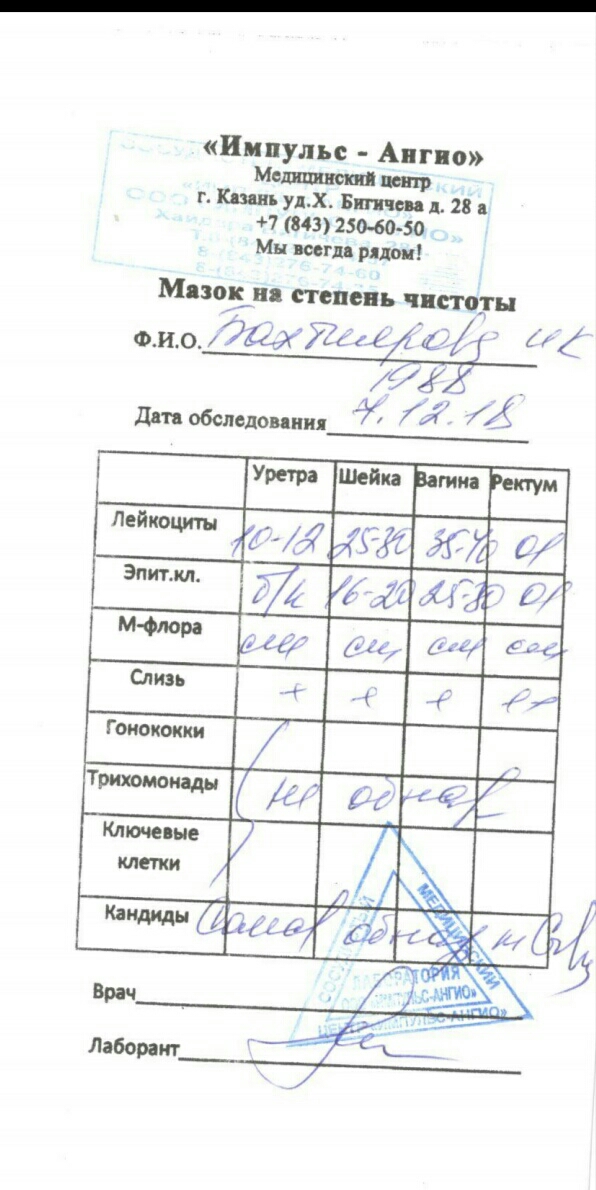 «Импульс - Ангио»
Медицинский центр
г. Казань уд.Х. Бигичева д. 28 а
+7 (843) 250-60-50
Мы всегда рядом!
Мазок на степень чистоты
Ф.И.О.
1988
Дата обследования 7.12.18
Уретра Шейка Вагина Ректум
Лейкоциты 10-12 25-30 35-40 ол
Эпит.кл. б/к 16-20 25-30 ол
М-флора см см см см
Слизь + + + ++
Гонококки
Трихомонады не обнар
Ключевые
клетки
Кандиды обнар
МЕДИЦИНСКИЙ
ЛАБОРАТОРИЯ
ООО «ИМПУЛЬС-АНГИО»
ЦЕНТР «ИМПУЛЬС-АНГИО»
Врач
Лаборант